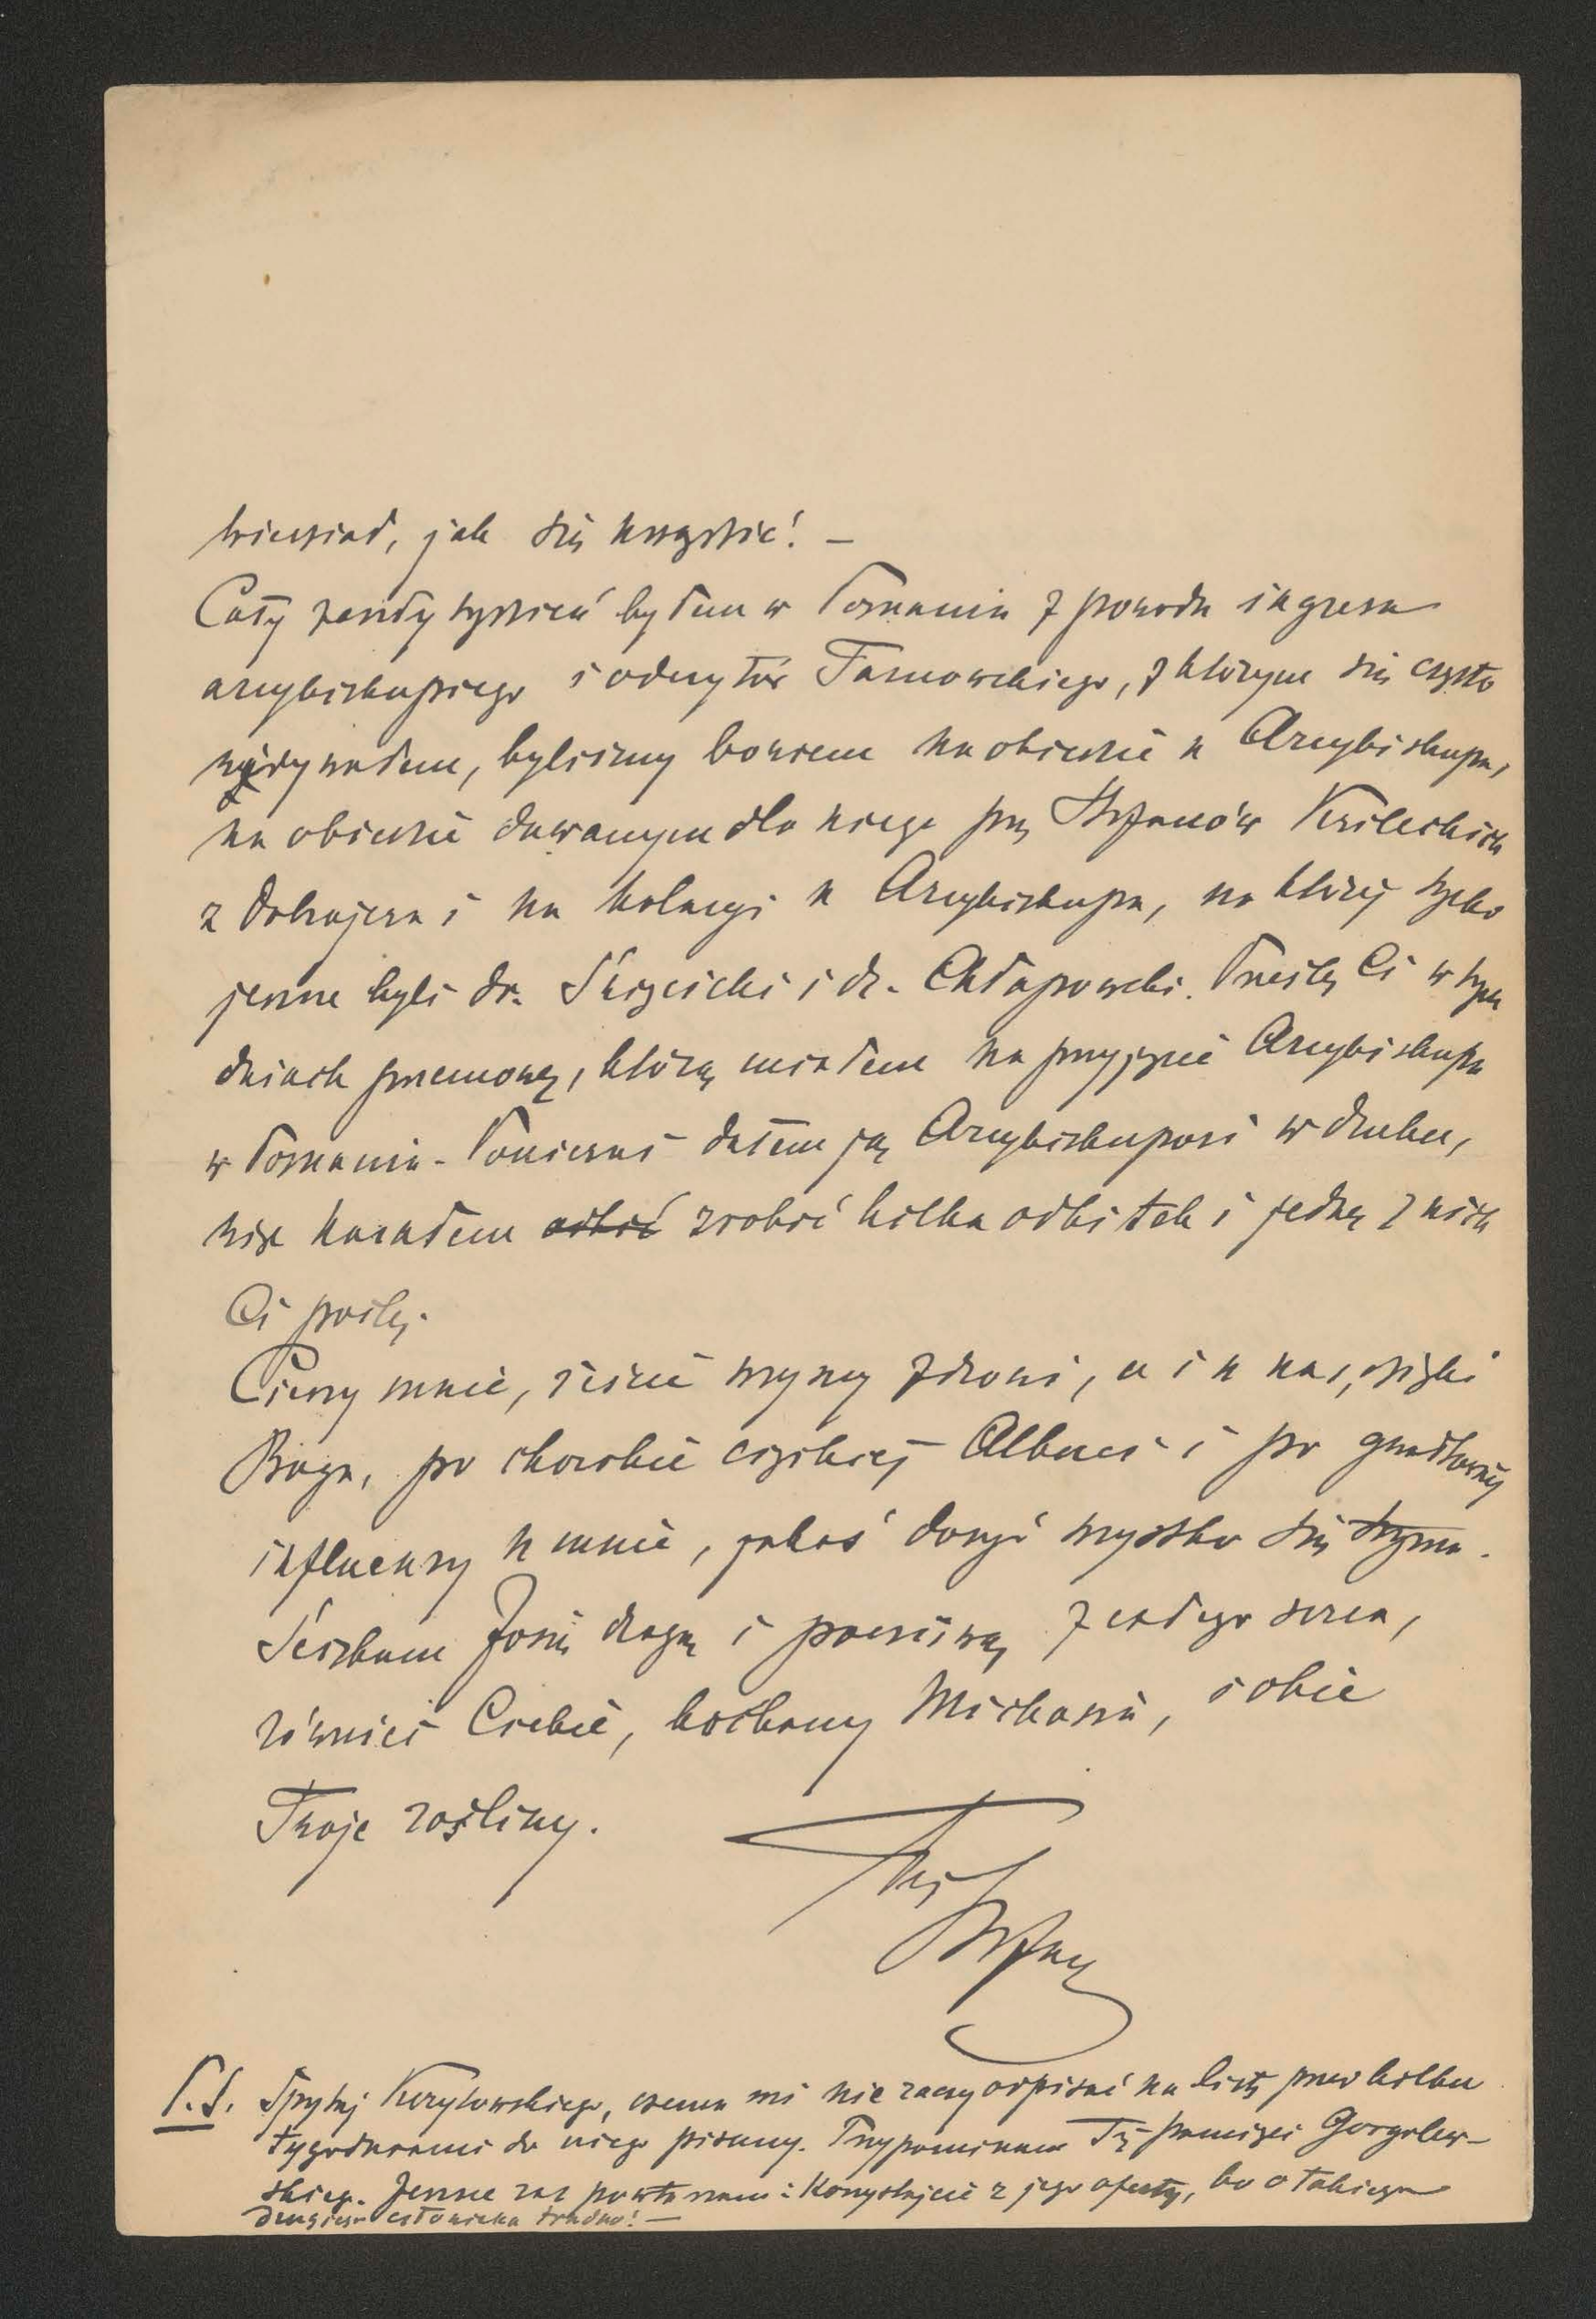 wiedział, jak się urządzić! –
Cały zeszły tydzień byłem w Poznaniu z powodu ingresu
arcybiskupiego i odczytów Tarnowskiego, z którym się często
widywałem, byliśmy bowiem na obiedzie u Arcybiskupa,
na obiedzie dawanym dla niego prz Stefanów Kwileckich
z Dobrojewa i na kolacyi u Arcybiskupa, na której tylko
jeszcze byli dr. Święcicki i dr. Chłapowski. Prześlę Ci w tych
dniach przemowę, którą miałem na przyjęcie Arcybiskupa
w Poznaniu. Ponieważ dałem ją Arcybiskupowi w druku,
więc kazałem odbić zrobić kilka odbitek i jedną z nich
Ci poślę.
Cieszy mnie, żeście wszyscy zdrowi, a i u nas, dzięki
Bogu, po chorobie ciężkiej i po gwałtownej
influenzy u mnie, jakoś dosyć wszystko się trzyma.
Ściskam Józię drogą i poczciwą z całego serca,
również Ciebie, kochany Michasiu, i obie
Twoje rośliny.
P.S. Spytaj Korytowskiego, czemu mi nie raczy odpisać na list przed kilku
tygodniami do niego pisany. Przypominam Tę pamięci Gorgolew-
skiego. Jeszcze raz powtarzam: Korzystajcie z jego oferty, bo o takiego
drugiego człowieka trudno! –